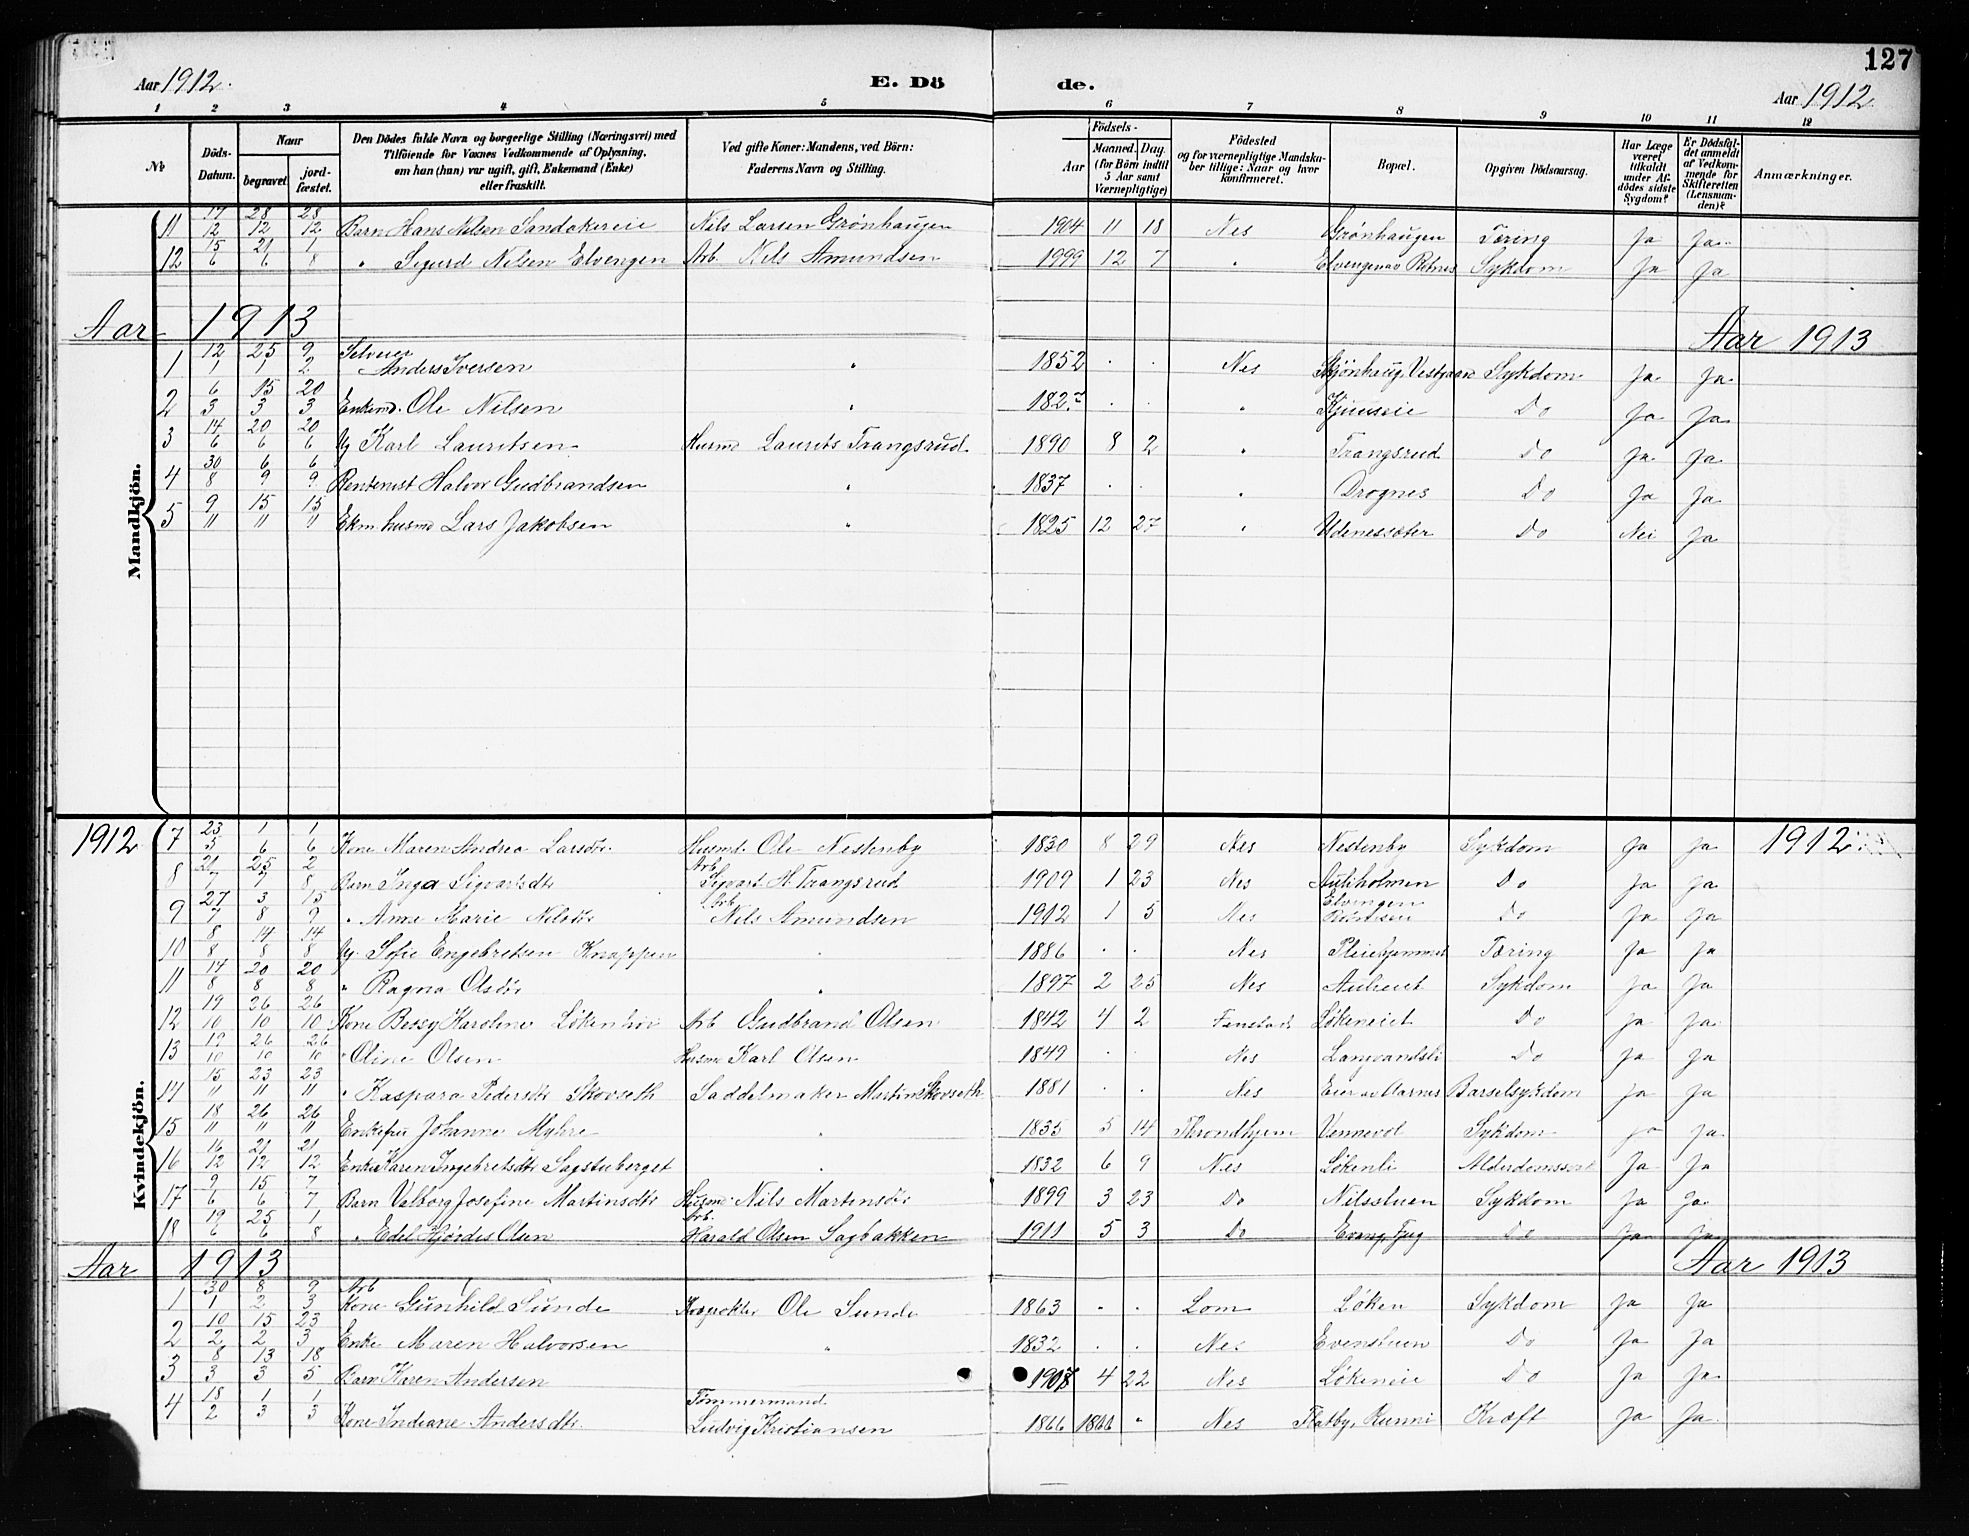 127
Aar 1912. E. Dö de. Aar 1912
1 2 3 4 5 6 7 8 9 10 11 12
№ Döds-Datum. Naar begravet. jordfæstet. Den Dödes fulde Navn og borgerlige Stilling (Næringsvei) med Tilföiende for Voxnes Vedkommende af Oplysning, om han (hun) var ugift, gift, Enkemand (Enke) eller fraskilt. Ved gifte Koner: Mandens, ved Börn: Faderens Navn og Stilling. Födsels- Aar Maaned. Dag. (for Börn indtil 5 Aar samt Værnepligtige) Födested og for værnepligtige Mandskaber tillige: Naar og hvor konfirmeret. Bopæl. Opgiven Dödsaarsag. Har Læge været tilkaldt under Afdödes sidste Sygdom? Er Dödsfaldet anmeldt af Vedkommende for Skifteretten (Lensmanden)? Anmærkninger.
Mandkjön.
11 17/12 28/12 28/12 Barn Hans Nilsen Sandakereie Nils Larsen Grønhaugen 1904 11 18 Nes Grønhaugen Tæring Ja Ja
12 15/6 21/6 1/8 " Sigurd Nilsen Elvengen Arb. Nils Amundsen 1999 12 7 " Elvengen av Rotnes Sykdom Ja Ja
Aar 1913 Aar 1913
1 12/1 25/1 9/2 Selveier Anders Iversen " 1852 . . Nes Vestgaard Sykdom Ja Ja
2 6/3 15/3 20/3 Enkemd. Ole Nilsen " 182 . . " Do Ja Ja
3 14/6 20/6 20/6 Ug Karl Lauritsen Husmd Laurits Trangsrud 1890 8 2 " Trangsrud Do Ja Ja
4 30/8 6/9 6/9 Rentenist Halvor Gudbrandsen " 1837 . . " Drognes Do Ja Ja
5 9/11 15/11 15/11 Ekm. husmd Lars Jakobsen " 1825 12 27 " Udenessæter Do Nei Ja
Kvindekjön.
1912 7 23/5 1/6 1/6 Kone Maren Andrea Larsdtr. Husmd. Ole Nestenby 1830 8 29 Nes Nestenby Sykdom Ja Ja 1912
8 21/7 25/7 2/8 Barn Inga Sigvartsdtr Arb. Sigvart H. Trangsrud 1909 1 23 Nes Auliholmen Do Ja Ja
9 27/7 3/8 15/9 " Anne Marie Nilsdtr Arb. Nils Amundsen 1912 1 5 Nes Elvengen Do Ja Ja
10 8/8 14/8 14/8 Ug. Sofie Engebretsen Knappen " 1886 . . Nes Pleiehjemmet Tæring Ja Ja
11 14/8 20/8 20/8 " Ragna Olsdtr " 1897 2 25 Nes Sykdom Ja Ja
12 19/10 26/10 26/10 Kone Bessy Karoline Arb Gudbrand Olsen 1842 4 2 Fenstad Løkeneiet Do Ja Ja
13 19/10 26/10 26/10 " Oline Olsen Husmd Karl Olsen 1849 . . Nes Langvandsli Do Ja Ja
14 15/11 23/11 23/11 " Kaspara Pedersdtr Skovseth Saddelmaker Martin Skovseth 1881 . . Nes Eier av Aarnes Barselsykdom Ja Ja
15 18/11 26/11 26/11 Enkefru Johanne Myhre " 1835 5 14 Throndhjem Vennevol Sykdom Ja Ja
16 16/12 21/12 21/12 Enke Karen Ingebretsdtr Sagstuberget " 1832 6 9 Nes Løkenli Ja Ja
17 9/6 15/6 7/7 Barn Valborg Josefine Martinsdtr Husmd. Nils Martinsdtr 1899 3 23 Do Nilsstuen Sykdom Ja Ja
18 19/6 25/6 1/8 " Edel Hjørdis Olsen Arb. Harald Olsen Sagbakken 1911 5 3 Do Do Ja Ja
Aar 1913 Aar 1913
1 30/1 8/2 9/3 Arb Kone Gunhild Sunde Ole Sunde 1863 . . Lom Løken Sykdom Ja Ja
2 10/2 15/2 23/3 Enke Maren Halvorsen " 1832 . . Nes Evenstuen Do Ja Ja
3 8/3 13/3 18/5 Barn Karen Andersen 1908 4 22 Nes Løkeneie Do Ja Ja
4 18/2 1/3 1/3 Kone Indiane Andersdtr. Tømmermand Ludvig Kristiansen 1866 1866 " Nes Flatby, Runni Kræft Ja Ja